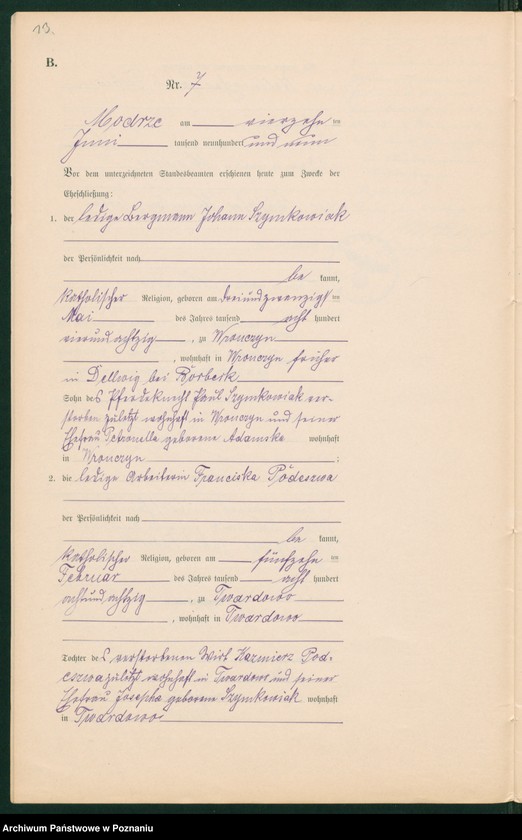 13.
B.
Nr. 7
Modrze am vierzehn ten
Juni tausend neunhundert und neun
Vor dem unterzeichneten Standesbeamten erschienen heute zum Zwecke der
Eheschließung:
1. der ledige Bergmann Johann Szymkowiak
der Persönlichkeit nach
be kannt,
katholischer Religion, geboren am dreiundzwanzigs ten
Mai des Jahres tausend acht hundert
vierundachtzig, zu Wronczyn
, wohnhaft in Wronczyn früher
in Dellwig bei Borbeck
Sohn des Pferdeknecht Paul Szymkowiak ver-
storben zuletzt wohnhaft in Wronczyn und seiner
Ehefrau Petronella geborene Adamska wohnhaft
in Wronczyn ;
2. die ledige Arbeiterin Franciska Podeszwa
der Persönlichkeit nach
be kannt,
katholischer Religion, geboren am fünfzehn ten
Februar des Jahres tausend acht hundert
achtundachtzig, zu Twardowo
, wohnhaft in Twardowo
Tochter des verstorbenen Wirt Kazmierz Pod-
eszwa zuletzt wohnhaft in Twardowo und seiner
Ehefrau Josepha geborene Szymkowiak wohnhaft
in Twardowo
Archiwum Państwowe w Poznaniu